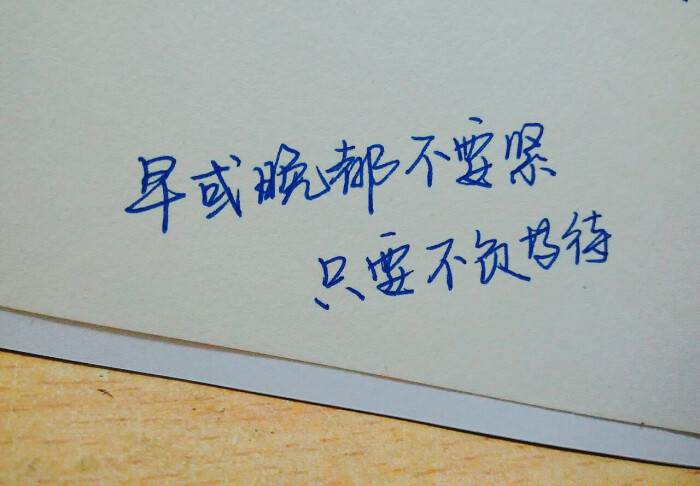 早或晚都不要紧
只要不负等待